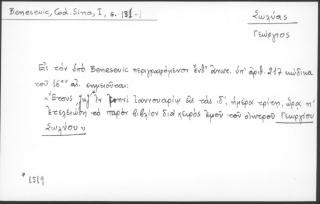 Benesevic, Cod. Sina, I, σ. 131.
Σωλύας
Γεώργιος
Εἰς τὸν ὑπὸ Benesevic περιγραφόμενον ἔνθ' ἀνωτ. ὑπ' ἀριθ. 217 κώδικα
τοῦ 16ου αἰ. σημειοῦται:
«Ἔτους ἐν μηνὶ Ἰαννουαρίῳ εἰς τὰς ιδ', ἡμέρα τρίτη, ὥρα η'
ἐτελειώθη τὸ παρὸν βιβλίον διὰ χειρὸς ἐμοῦ τοῦ οἰκτροῦ Γεωργίου
Σωλύου»
* 1519